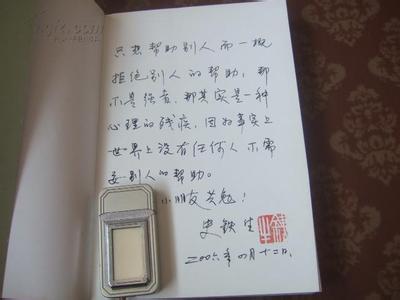 只想帮助别人而一概
拒绝别人的帮助，那
不是强者，那其实是一种
心理的残疾，因为事实上
世界上没有任何人不需
要别人的帮助。
小朋友共勉！
史铁生
二〇〇六年四月十二日